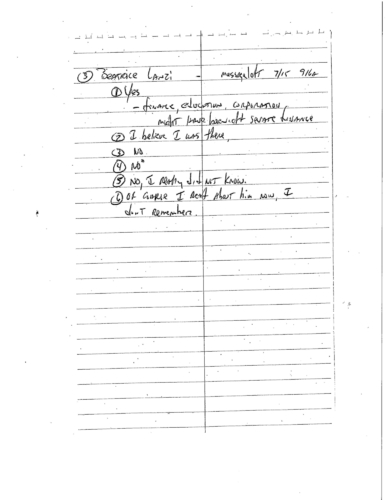 ③ Beatrice Lanzi - message left 7/15 916a
① Yes
- finance, education, corporation,
might have been on Senate Finance
② I believe I was there.
③ No
④ No"
⑤ No, I really did not know.
⑥ Of course I read about him now, I
don't remember.